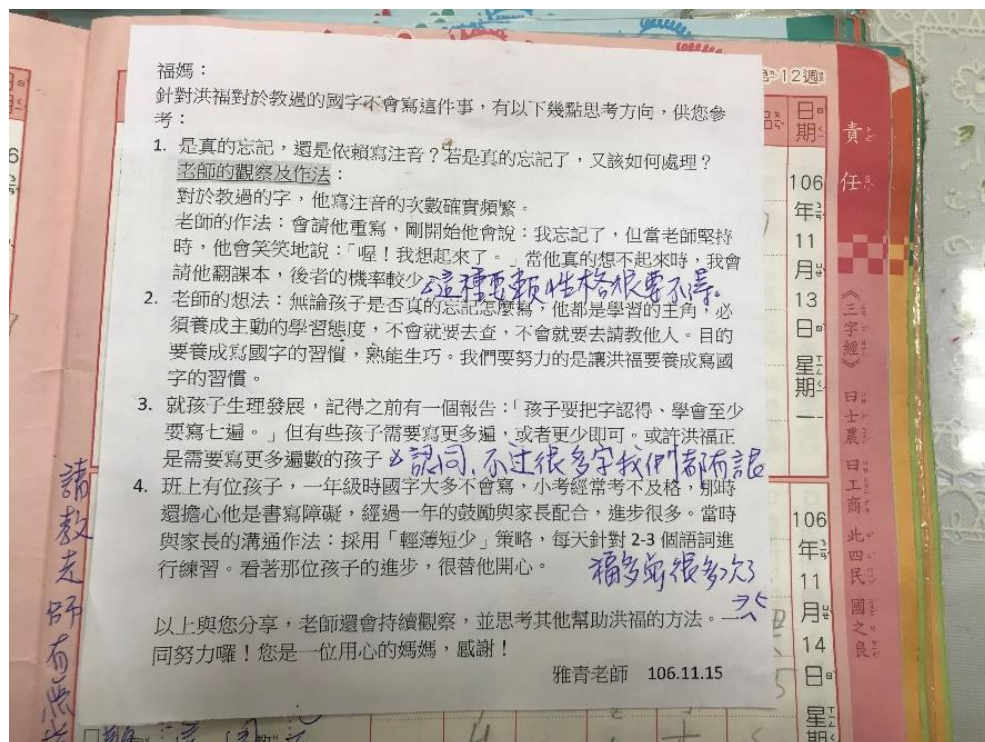 福媽：
針對洪福對於教過的國字不會寫這件事，有以下幾點思考方向，供您參
考：
1. 是真的忘記，還是依賴寫注音？若是真的忘記了，又該如何處理？
老師的觀察及作法：
對於教過的字，他寫注音的次數確實頻繁。
老師的作法：會請他重寫，剛開始他會說：我忘記了，但當老師堅持
時，他會笑笑地說：「喔！我想起來了。」當他真的想不起來時，我會
請他翻課本，後者的機率較少。
這種耍賴性格很要不得。
2. 老師的想法：無論孩子是否真的忘記怎麼寫，他都是學習的主角，必
須養成主動的學習態度，不會就要去查，不會就要去請教他人。目的
要養成寫國字的習慣，熟能生巧。我們要努力的是讓洪福要養成寫國
字的習慣。
3. 就孩子生理發展，記得之前有一個報告：「孩子要把字認得、學會至少
要寫七遍。」但有些孩子需要寫更多遍，或者更少即可。或許洪福正
是需要寫更多遍數的孩子
認同，不过很多字我們都有讓
福多寫很多次了
4. 班上有位孩子，一年級時國字大多不會寫，小考經常考不及格，那時
還擔心他是書寫障礙，經過一年的鼓勵與家長配合，進步很多。當時
與家長的溝通作法：採用「輕薄短少」策略，每天針對 2-3 個語詞進
行練習。看著那位孩子的進步，很替他開心。
以上與您分享，老師還會持續觀察，並思考其他幫助洪福的方法。一
同努力囉！您是一位用心的媽媽，感謝！
雅青老師 106.11.15
請教老師有
第12週
日期
106
年
11
月
13
日
星期一
106
年
11
月
14
日
星期
責任
《三字經》
曰士農 曰工商 此四民 國之良